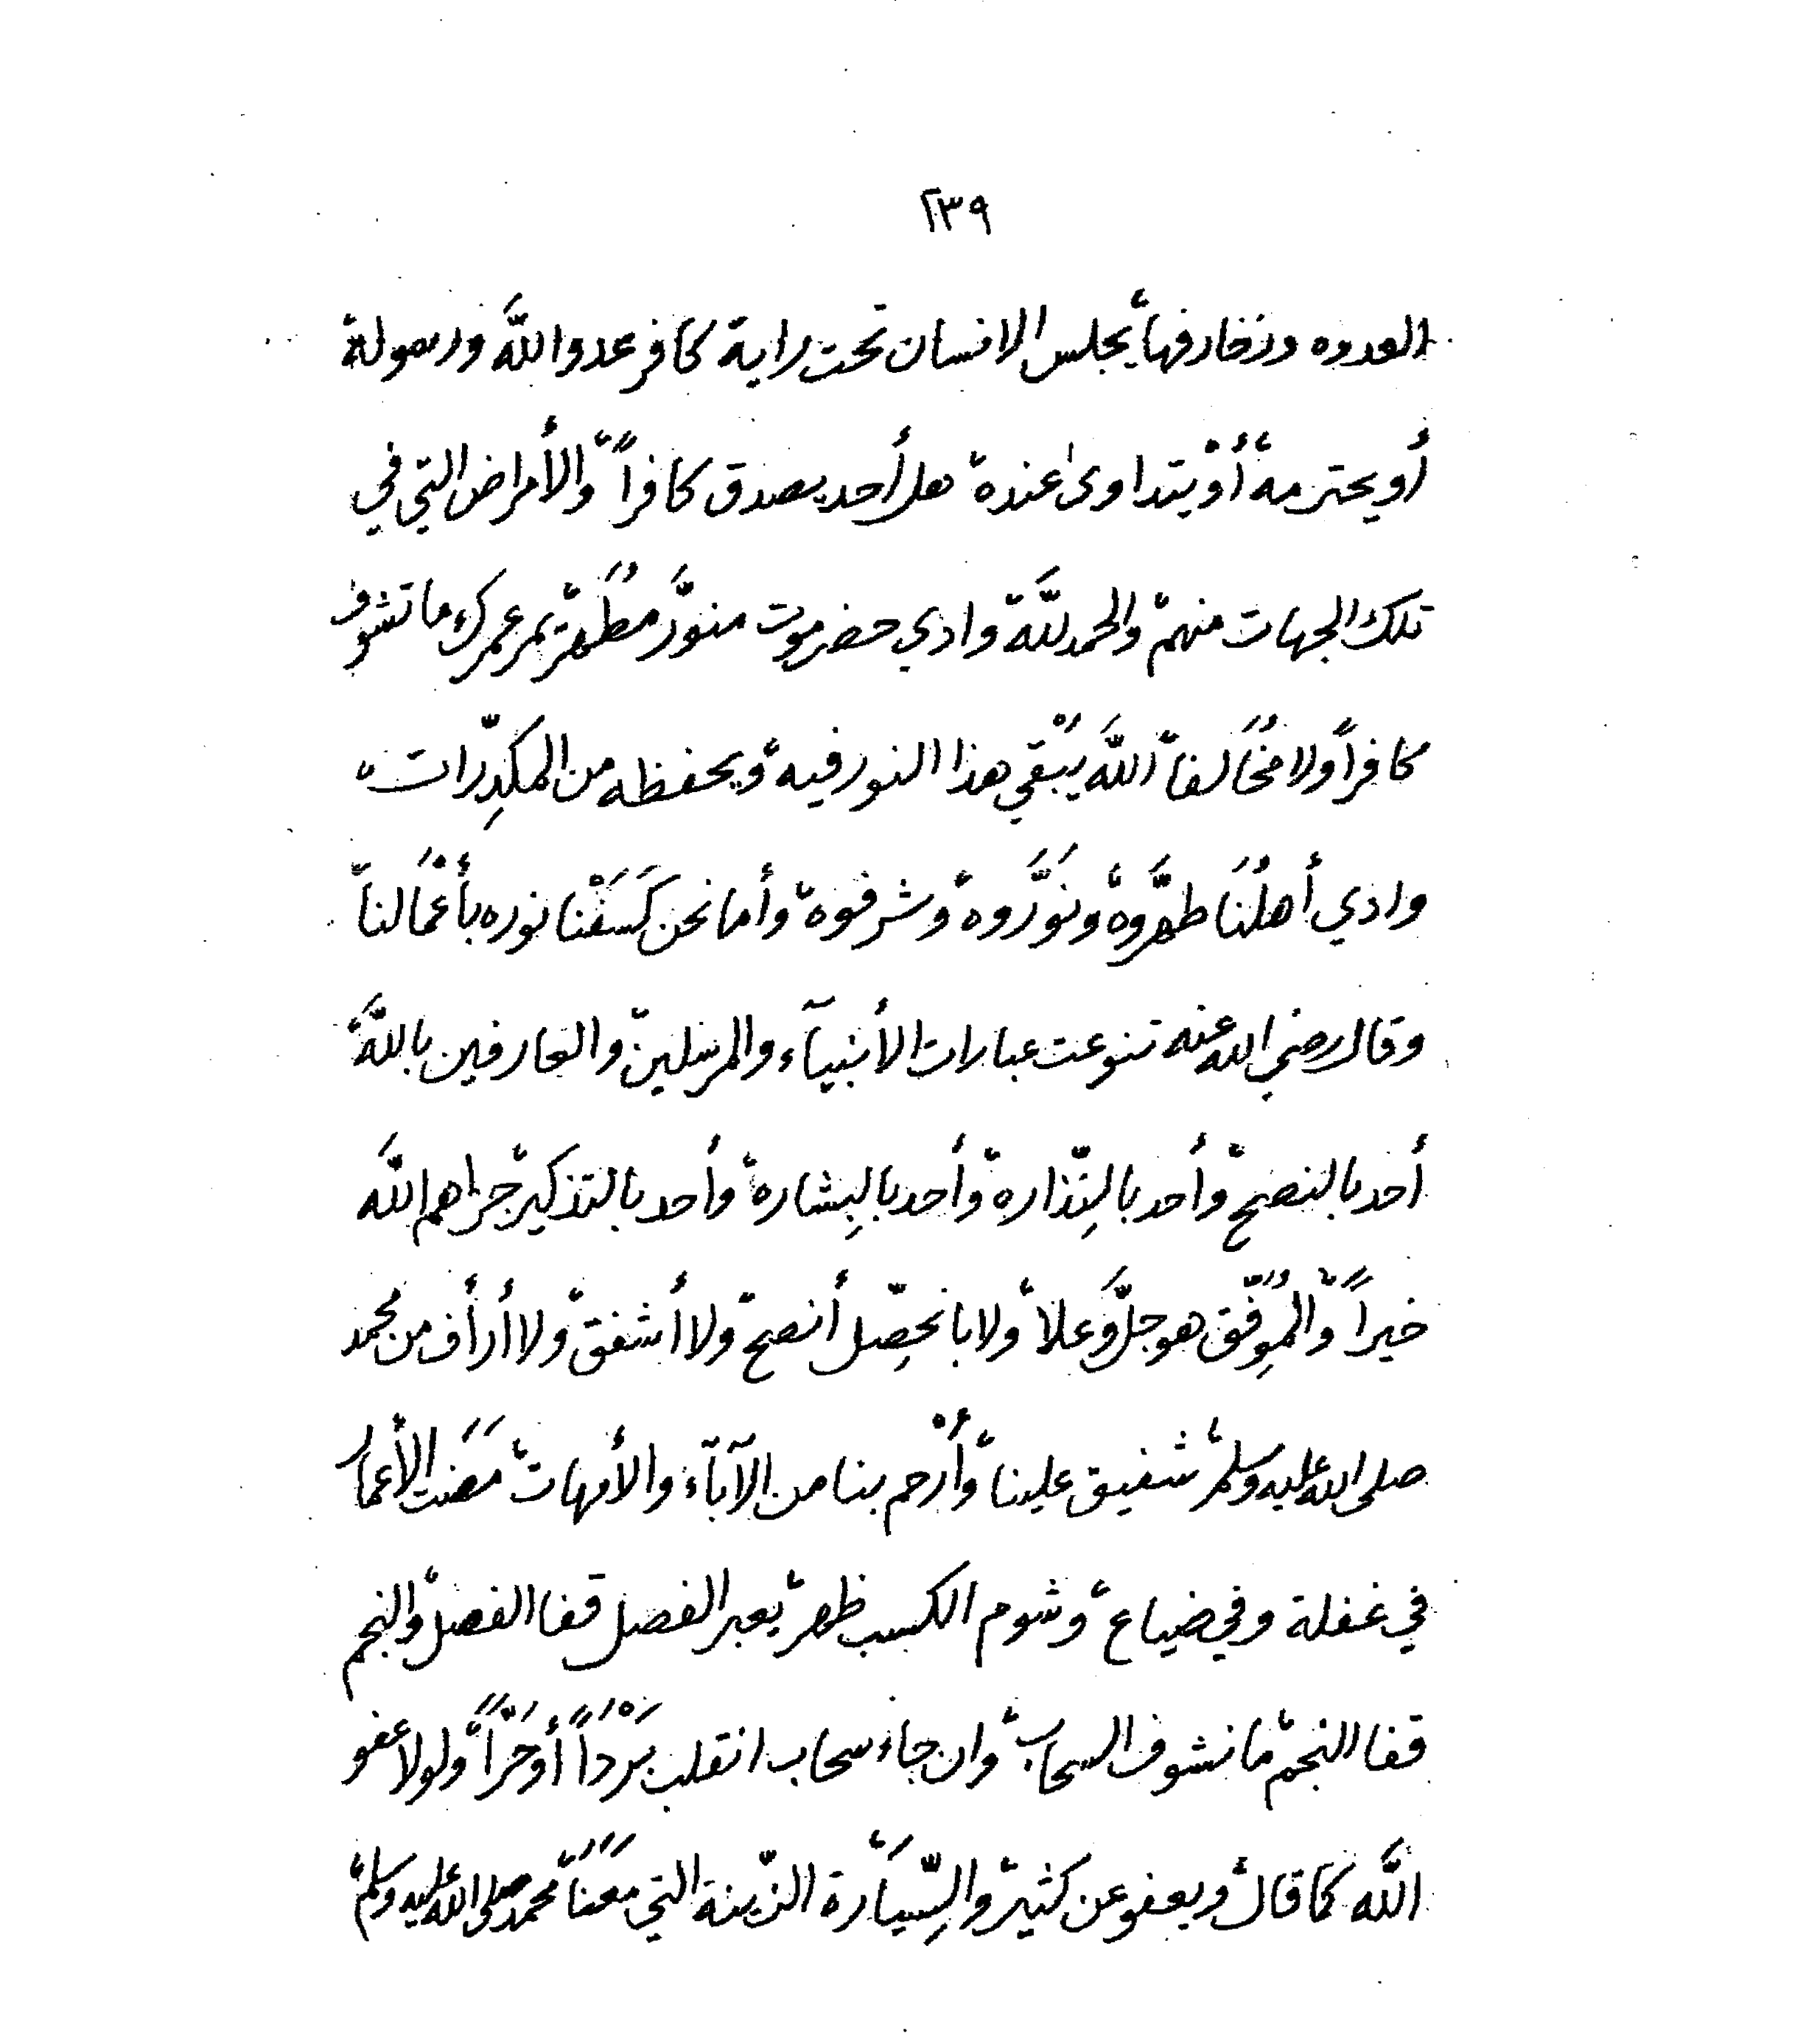 ٢٣٩
العدوه وزخارفها، يجلس الانسان تحت راية كافر عدو اللَّه ورسوله،
أو يحترمه، أوْ يتداوىٰ عنده، هل أحد يصدق كافراً، والأمراض التي في
تلك الجهات منهم، والحمد للَّه، وادي حضرموت منوَّر مُطَهَّر، يمر عمرك ما تشوف
كافراً ولا مُخَالفاً، اللَّه يُبْقي هذا النور فيه، ويحفظه من المكدِّرات،
وادي أهلُنَا طهَّروهُ ونَوَّروه، وشرفوه، وأما نحن كَسَفْنا نوره بأعْمَالنا،
وقال رضي الله عنه تنوعت عبارات الأنبيآء والمرسلين، والعارفين باللَّه،
أحد بالنصح، وأحد بالنِّذاره، وأحد بالبِشاره، وأحد بالتذكير، جزاهم اللَّه
خيراً، والمُوِفِّق هو جلَّ وَعلا، ولا با نحصِّل أنصح، ولا أشفق، ولا أرأف من محمد
صلى الله عليه وسلم، شفيق علينا، وأرْحم بنا من الآبآء والأمهات، مَضَت الأعمار
في غفلة وفي ضياع، وشوم الكسب ظهر، يعبر الفصل قفا الفصل، والنجم
قفا النجم، ما نشوف السحاب، وان جاء سحاب انقلب بَرْداً أو حَرّاً، ولولا عفو
اللَّه كما قال، ويعفو عن كثير، والسِّيَارة الزّينة التي معَنَا، محمد صلى الله عليه وسلم،